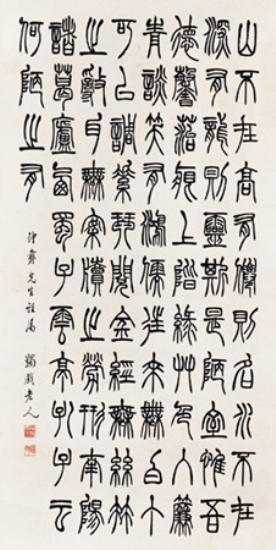 山不在高有僊則名水不在
深有龍則靈斯是陋室惟吾
德馨苔痕上階綠艸色入簾
青談笑有鴻儒往來無白丁
可以調素琴閱金經無絲竹
之亂耳無案牘之勞形南陽
諸葛廬西蜀子雲亭孔子云
何陋之有
仲彝先生雅屬
老人